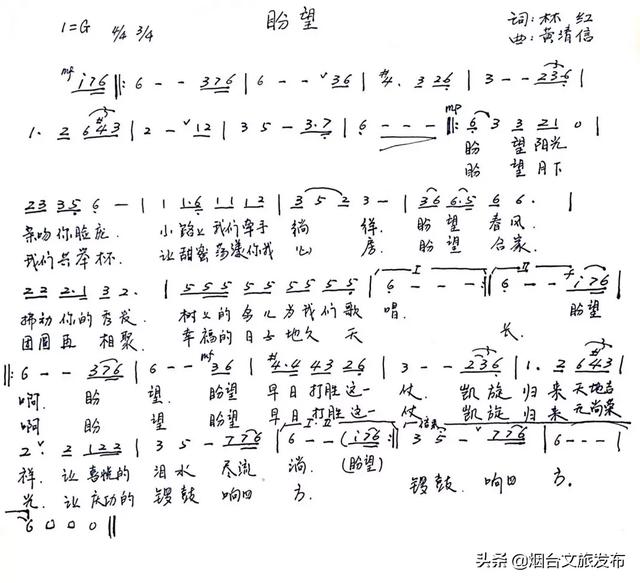 盼望
1=G 4/4 3/4
词:林红
曲:黄清信
mf i76 ‖: 6 - - 376 | 6 - - ˅36 | #4. 3 26 | 3 - - 236 |
1. 2 6#43 | 2 - ˅12 | 3 5 - 3.7 | 6 - - - ‖: mp 6 3 3 21 0 |
盼 望 阳光
盼 望 月下
23 35 6 - | 1 1.6 11 12 | 3 5 2 3 - | 36 6.5 6 6. |
亲吻你脸庞. 小路上我们牵手徜 徉. 盼望 春风.
我们共举杯. 让甜蜜荡漾你我心 房. 盼望 合家.
22 2.1 32. | 55 55 55 55 55 | I 6 - - - :‖ II 6 - - f i76 |
拂动你的秀发. 树上的鸟儿为我们歌 唱. 盼望
团圆再 相聚. 幸福的日子地久天 长.
‖: 6 - - 376 | 6 - - mf 36 | #4.4 43 26 | 3 - - 236 | 1. 2 6#43 |
啊. 盼 望. 盼望 早日打胜这一 仗. 凯旋 归来天地吉
啊 盼 望 盼望 早日打胜这一 仗 凯旋 归来无尚荣
2˅. 2 1 22 | 3 5 - 776 | I. II 6 - - (i76) :‖ 3 5 - ˅776 | 6 - - - |
祥. 让喜悦的 泪水 尽流 淌. (盼望) 锣鼓. 响四 方.
光. 让庆功的 锣鼓 响四 方.
6 0 0 0 ‖
头条 @烟台文旅发布